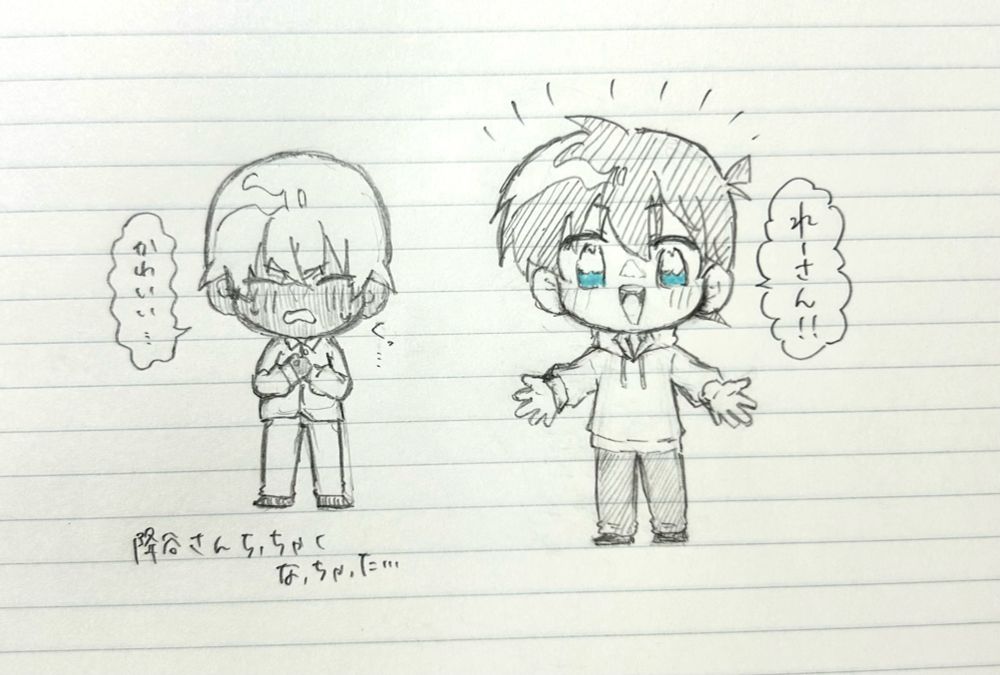 れーさん!!
かわいい…
くっ…
降谷さんちっちゃく
なっちゃった…